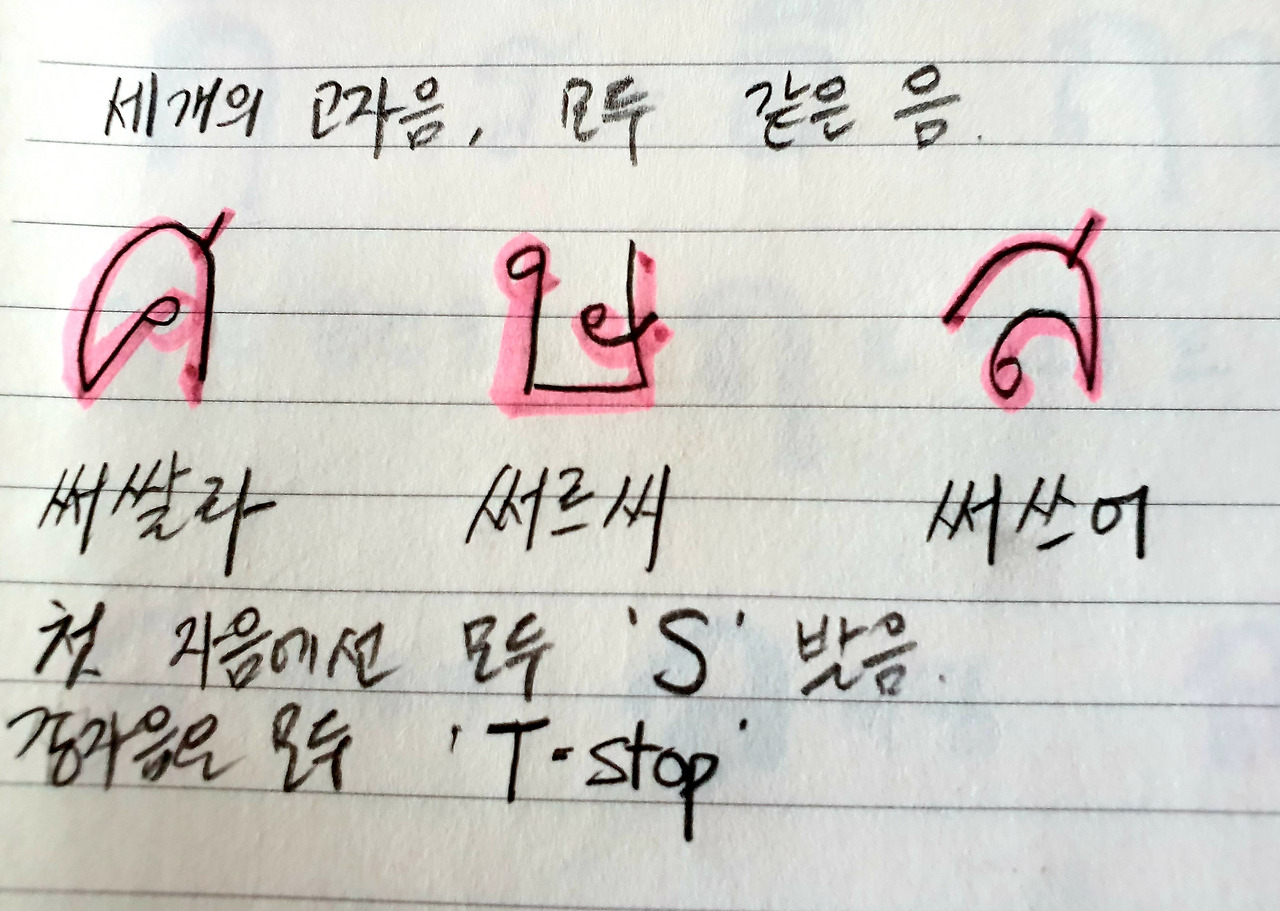 세개의 고자음, 모두 같은 음.
ศ ษ ส
써쌀라 써르씨 써쓰어
첫 자음에선 모두 'S' 발음.
종자음은 모두 'T-stop'